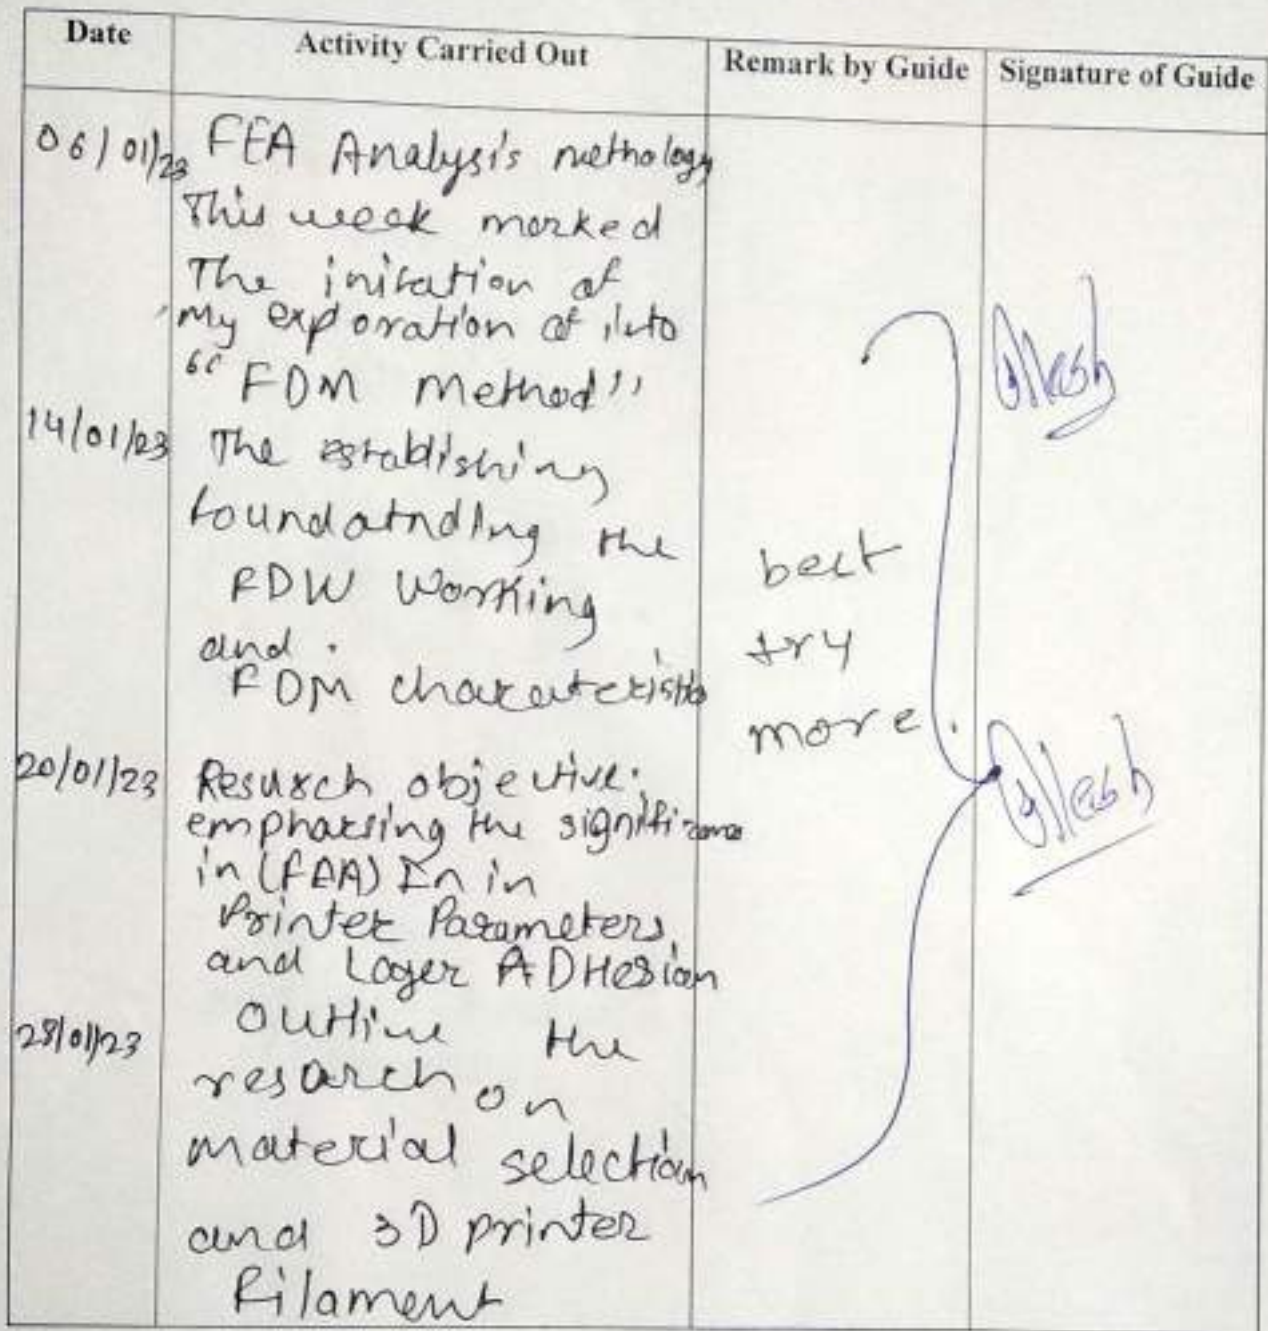 Date Activity Carried Out Remark by Guide Signature of Guide
06/01/23 FEA Analysis methology
This week marked
The initation of
My exporation of into
"FDM Method"
14/01/23 The establishing
foundatnding the
FDW Working
and.
FDM charateristis
best
try
more.
20/01/23 Resurch objective:
emphatsing the significance
in (FEA) In in
Printer Parameters
and Layer ADHesian
28/01/23 Outline the
research on
material selection
and 3D printer
Filament